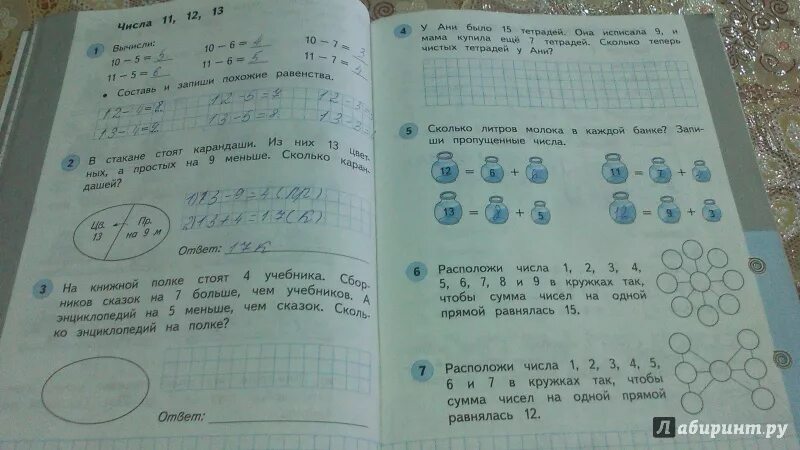 Числа 11, 12, 13
1 Вычисли:
10 – 5 = 5 10 – 6 = 4 10 – 7 = 3
11 – 5 = 6 11 – 6 = 5 11 – 7 =
• Составь и запиши похожие равенства.
12-4=8 12-5=7 12-3=
13-4=9 13-5=8 13-3=
2 В стакане стоят карандаши. Из них 13 цвет-
ных, а простых на 9 меньше. Сколько каран-
дашей?
Цв. 13
Пр. на 9 м
1)13-9=4(пр)
2)13+4=17(К)
Ответ: 17К
3 На книжной полке стоят 4 учебника. Сбор-
ников сказок на 7 больше, чем учебников. А
энциклопедий на 5 меньше, чем сказок. Сколь-
ко энциклопедий на полке?
Ответ:
4 У Ани было 15 тетрадей. Она исписала 9, и
мама купила ещё 7 тетрадей. Сколько теперь
чистых тетрадей у Ани?
5 Сколько литров молока в каждой банке? Запи-
ши пропущенные числа.
12 = 6 + 11 = 7 +
13 = + 5 12 = 9 + 3
6 Расположи числа 1, 2, 3, 4,
5, 6, 7, 8 и 9 в кружках так,
чтобы сумма чисел на одной
прямой равнялась 15.
7 Расположи числа 1, 2, 3, 4, 5,
6 и 7 в кружках так, чтобы
сумма чисел на одной прямой
равнялась 12.
Лабиринт.ру